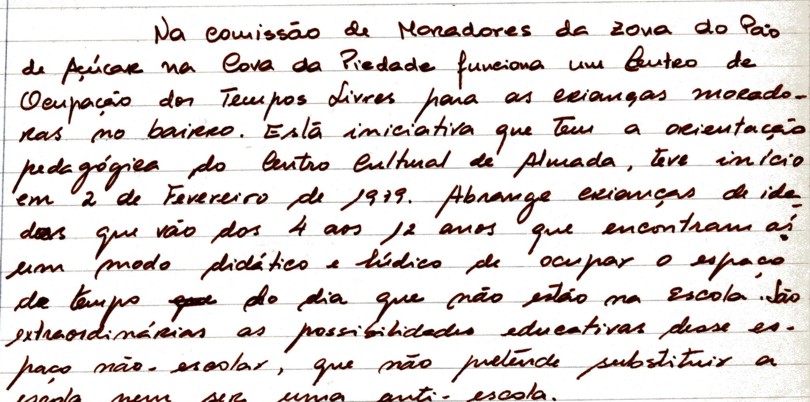 Na comissão de Moradores da zona do Pão
de Açúcar na Cova da Piedade funciona um Centro de
Ocupação dos Tempos Livres para as crianças morado-
ras no bairro. Está iniciativa que tem a orientação
pedagógica do Centro Cultural de Almada, teve início
em 2 de Fevereiro de 1979. Abrange crianças de ida-
des que vão dos 4 aos 12 anos que encontram aí
um modo didático e lúdico de ocupar o espaço
de tempo do dia que não estão na Escola. São
extraordinárias as possibilidades educativas desse es-
paço não-escolar, que não pretende substituir a
escola nem ser uma anti-escola.